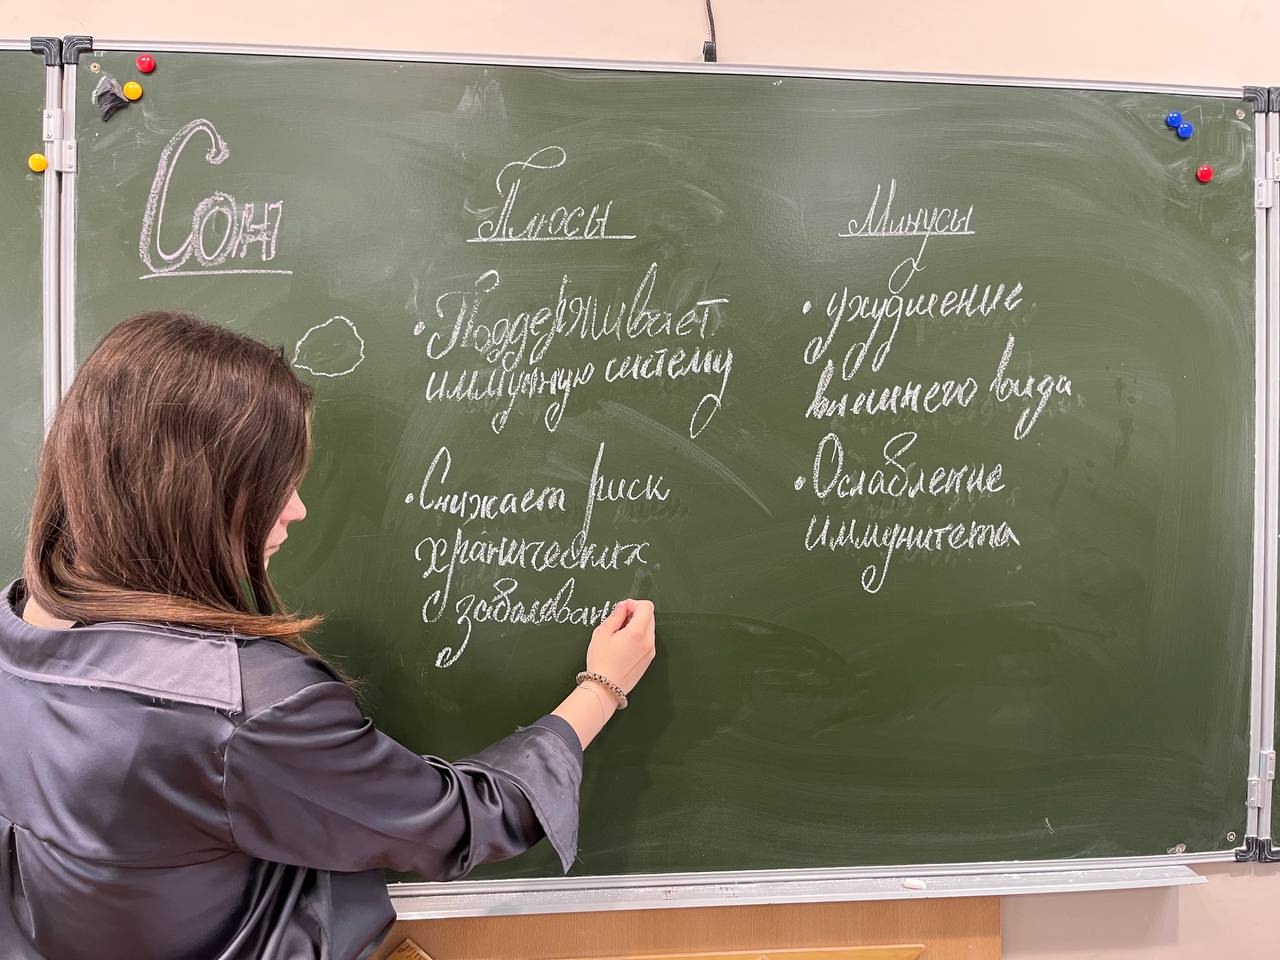 Сон
Плюсы
• Поддерживает
иммунную систему
• Снижает риск
хранических
заболеван
Минусы
• ухудшение
внешнего вида
• Ослабление
иммунитета